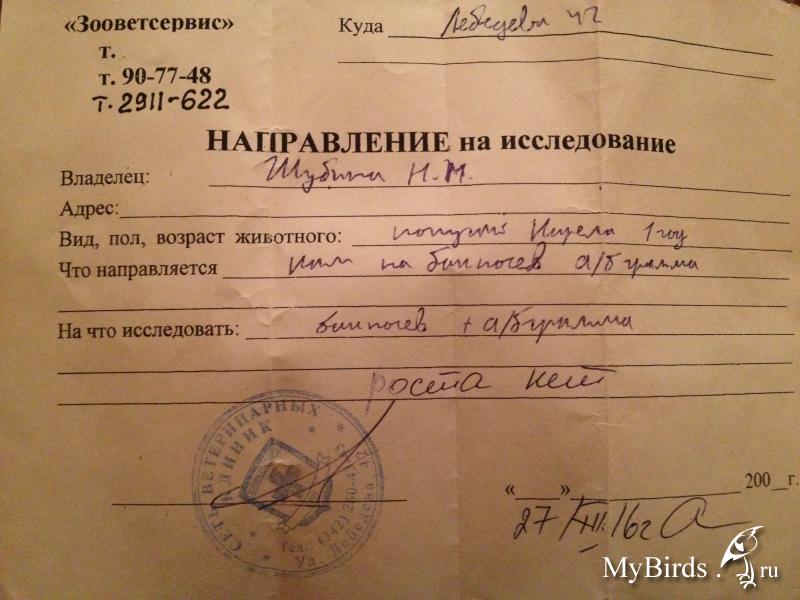 «Зооветсервис»
Куда Лебедева 42
т.
т. 90-77-48
т. 2911-622
НАПРАВЛЕНИЕ на исследование
Владелец: Шубина Н.М.
Адрес:
Вид, пол, возраст животного: попугай Кирела 1 год
Что направляется кал на бакпосев а/бграмма
На что исследовать: бакпосев + а/бграмма
роста нет
СЕТЬ ВЕТЕРИНАРНЫХ КЛИНИК
Тел.: (342)
Ул. Лебедева 42
«___» 200_г.
27 /XII. 16г
MyBirds.ru